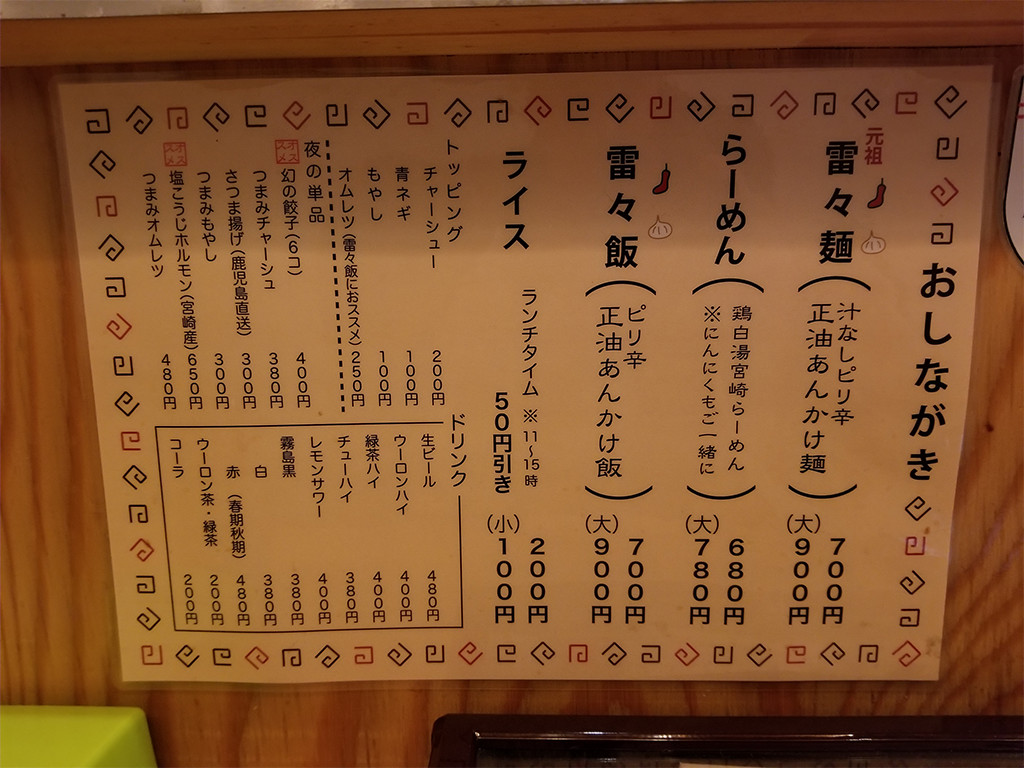 おしながき
元祖
雷々麺
(汁なしピリ辛
正油あんかけ麺)
700円
(大)900円
らーめん
(鶏白湯宮崎らーめん
※にんにくもご一緒に)
680円
(大)780円
雷々飯
(ピリ辛
正油あんかけ飯)
700円
(大)900円
ライス
200円
(小)100円
ランチタイム ※11~15時
50円引き
トッピング
チャーシュー 200円
青ネギ 100円
もやし 100円
オムレツ(雷々飯におススメ) 250円
夜の単品
オススメ
幻の餃子(6コ) 400円
つまみチャーシュ 380円
さつま揚げ(鹿児島直送) 300円
つまみもやし 300円
オススメ
塩こうじホルモン(宮崎産) 650円
つまみオムレツ 480円
ドリンク
生ビール 480円
ウーロンハイ 400円
緑茶ハイ 400円
チューハイ 380円
レモンサワー 400円
霧島黒 380円
白 380円
赤(春期秋期) 480円
ウーロン茶・緑茶 200円
コーラ 200円